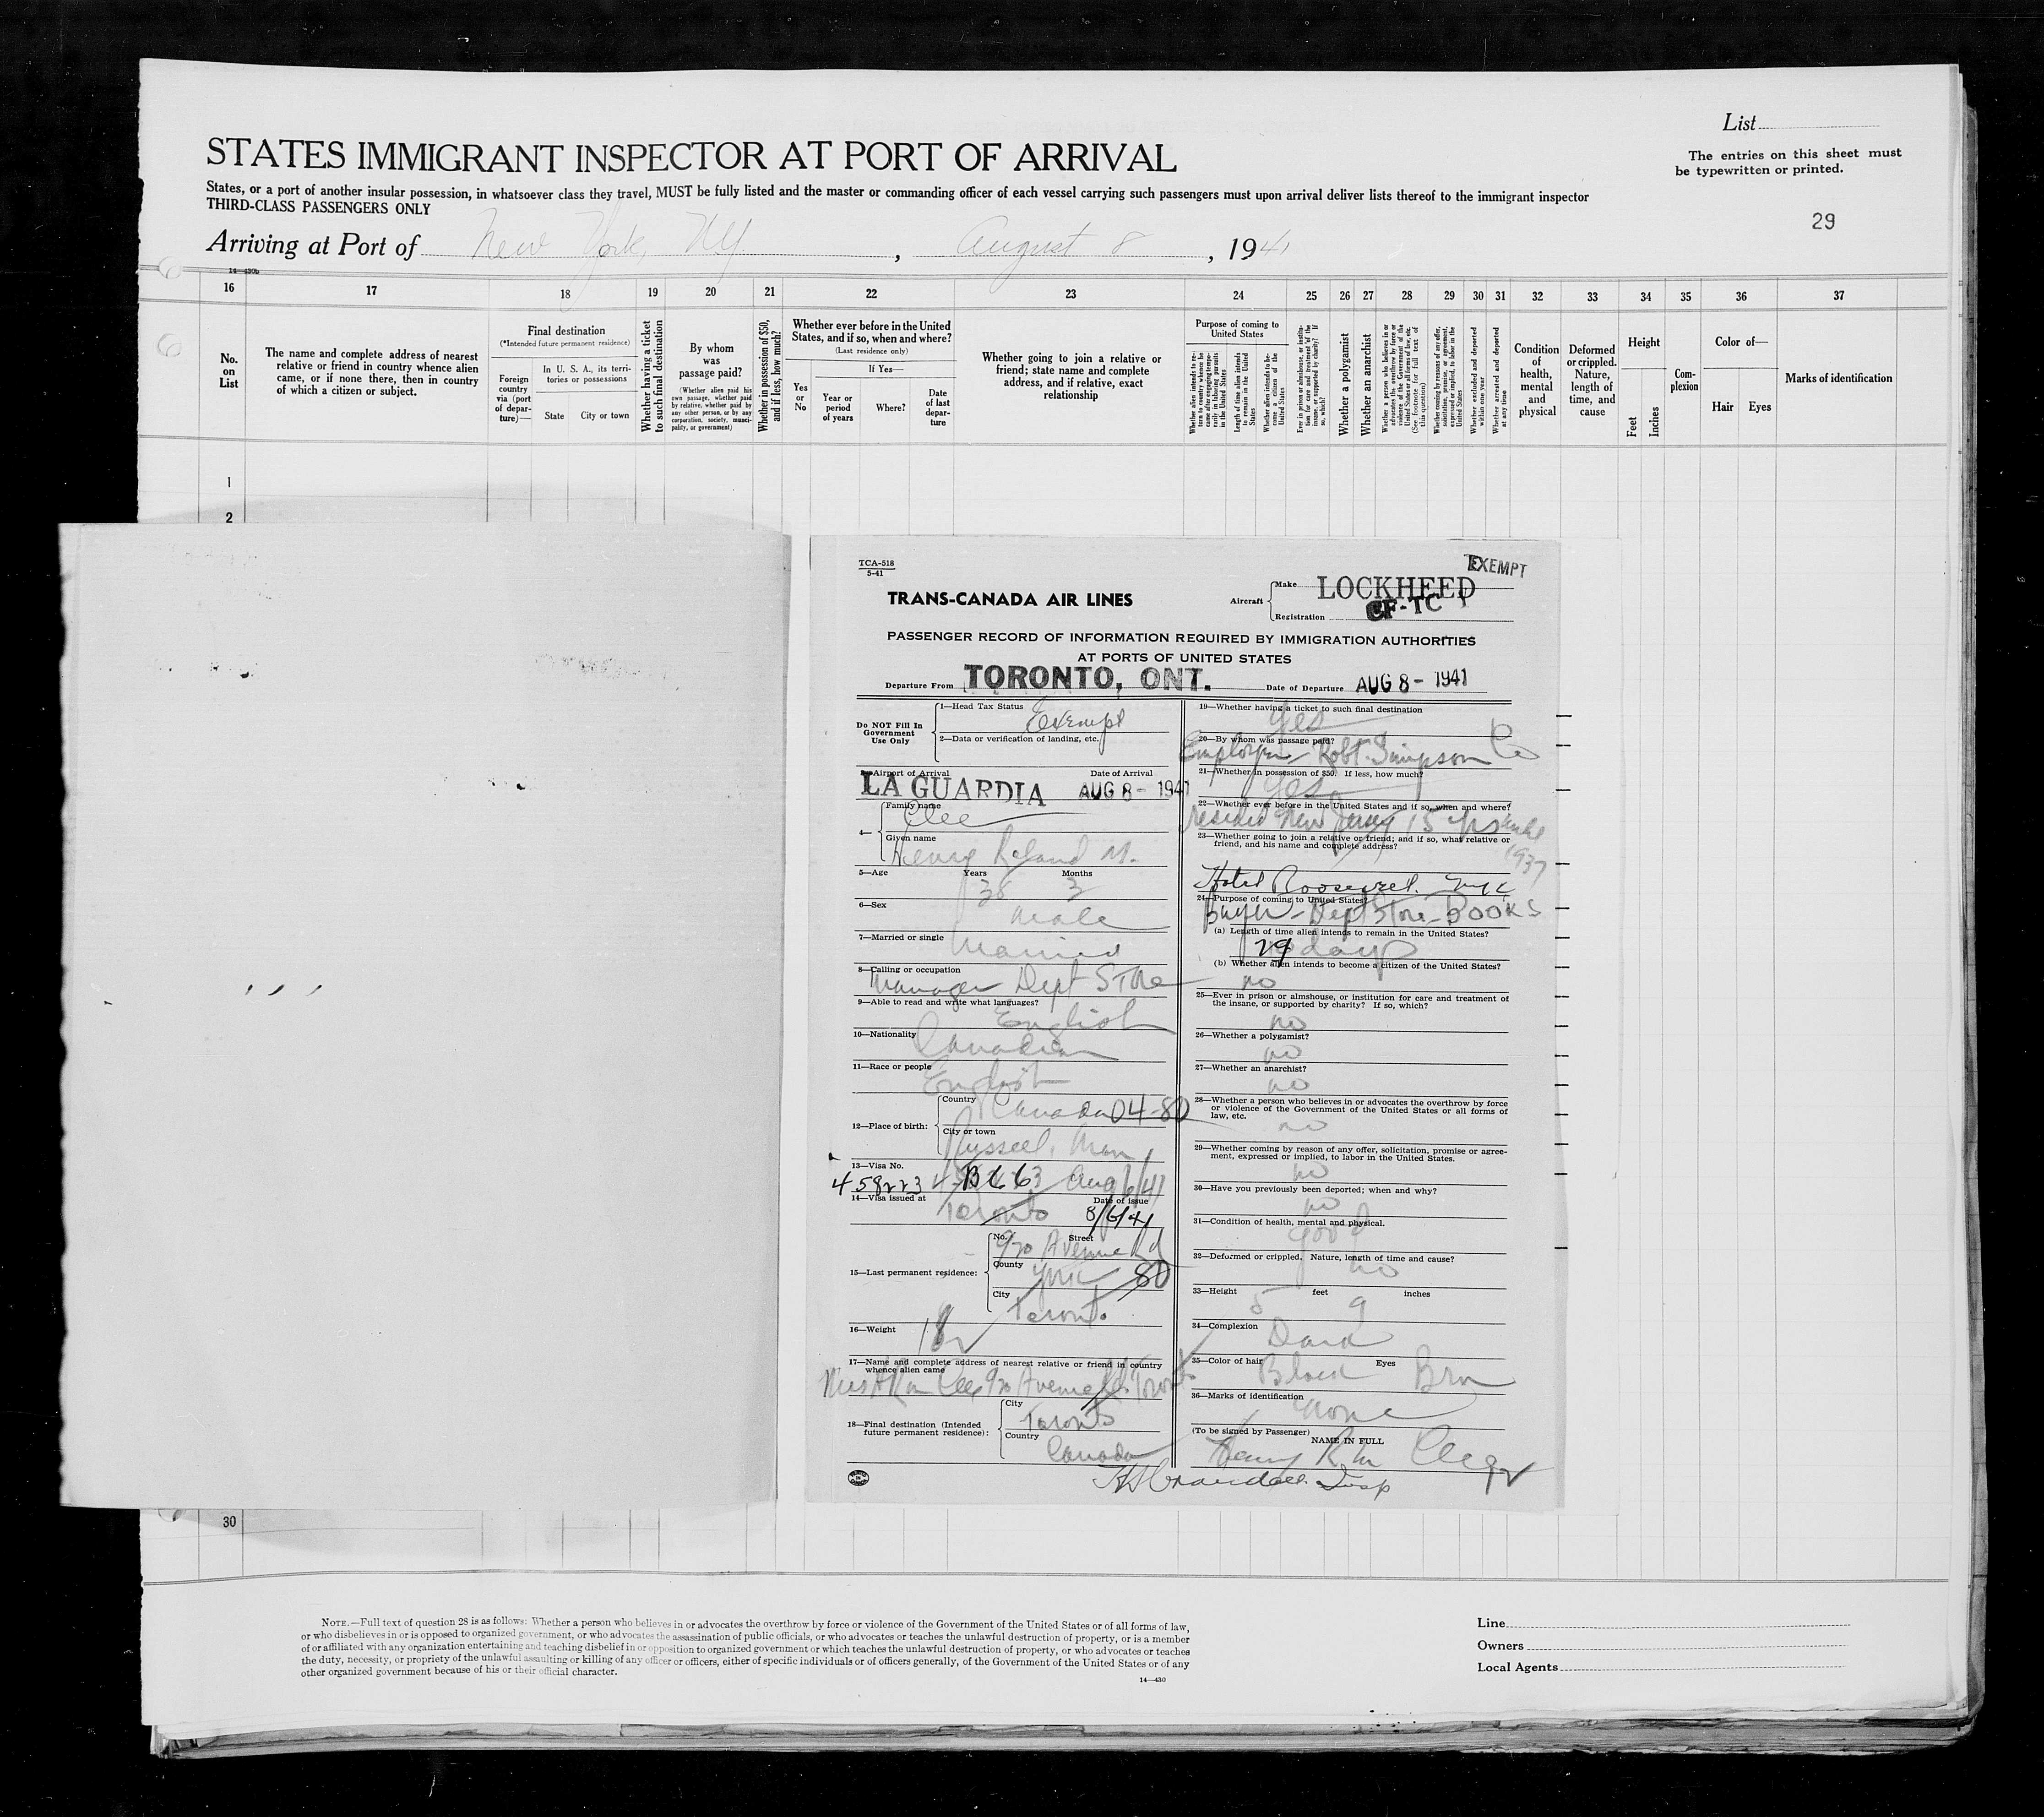 List
The entries on this sheet must
be typewritten or printed.
STATES IMMIGRANT INSPECTOR AT PORT OF ARRIVAL
States, or a port of another insular possession, in whatsoever class they travel, MUST be fully listed and the master or commanding officer of each vessel carrying such passengers must upon arrival deliver lists thereof to the immigrant inspector
THIRD-CLASS PASSENGERS ONLY
29
Arriving at Port of New York, NY, August 8, 1941
14—430b
16 17 18 19 20 21 22 23 24 25 26 27 28 29 30 31 32 33 34 35 36 37
No. on List
The name and complete address of nearest relative or friend in country whence alien came, or if none there, then in country of which a citizen or subject.
Final destination
(*Intended future permanent residence)
Foreign country via (port of departure)—
In U. S. A., its territories or possessions
State City or town
Whether having a ticket to such final destination
By whom was passage paid?
(Whether alien paid his own passage, whether paid by relative, whether paid by any other person, or by any corporation, society, municipality, or government)
Whether in possession of $50, and if less, how much?
Whether ever before in the United States, and if so, when and where?
(Last residence only)
Yes or No
If Yes—
Year or period of years
Where?
Date of last departure
Whether going to join a relative or friend; state name and complete address, and if relative, exact relationship
Purpose of coming to United States
Length of time alien intends to remain in the United States
Whether alien intends to become a citizen of the United States
Whether a polygamist
Whether an anarchist
Whether excluded and deported within one year
Whether arrested and deported at any time
Condition of health, mental and physical
Deformed or crippled. Nature, length of time, and cause
Height
Feet Inches
Complexion
Color of—
Hair Eyes
Marks of identification
1
2
TCA-518
5-41
EXEMPT
TRANS-CANADA AIR LINES
Aircraft Make LOCKHEED
Registration CF-TC
PASSENGER RECORD OF INFORMATION REQUIRED BY IMMIGRATION AUTHORITIES
AT PORTS OF UNITED STATES
Departure From TORONTO, ONT. Date of Departure AUG 8 - 1941
Do NOT Fill In Government Use Only
1—Head Tax Status Exempt
2—Data or verification of landing, etc.
3—Airport of Arrival Date of Arrival
LA GUARDIA AUG 8 - 1941
4— Family name
Given name
Henry Roland M.
5—Age Years 38 Months 3
6—Sex Male
7—Married or single Married
8—Calling or occupation
Manager Dept Store
9—Able to read and write what languages?
English
10—Nationality Canadian
11—Race or people English
12—Place of birth: Country Canada 04-80
City or town
Russell, Man
13—Visa No.
458223 Aug 6/41
14—Visa issued at Toronto Date of issue 8/6/41
15—Last permanent residence: No. Street
970 Avenue Rd
County York 80
City Toronto
16—Weight 182
17—Name and complete address of nearest relative or friend in country
whence alien came
970 Avenue Rd. Toronto
18—Final destination (Intended
future permanent residence):
City Toronto
Country Canada
19—Whether having a ticket to such final destination
Yes
20—By whom was passage paid?
Employer - Robt. Simpson Co
21—Whether in possession of $50. If less, how much?
Yes
22—Whether ever before in the United States and if so, when and where?
Resided New Jersey 15 yrs until 1937
23—Whether going to join a relative or friend; and if so, what relative or
friend, and his name and complete address?
Hotel Roosevelt. NYC
24—Purpose of coming to United States?
Buyer - Dept Store - BOOKS
(a) Length of time alien intends to remain in the United States?
29 days
(b) Whether alien intends to become a citizen of the United States?
no
25—Ever in prison or almshouse, or institution for care and treatment of
the insane, or supported by charity? If so, which?
no
26—Whether a polygamist?
no
27—Whether an anarchist?
no
28—Whether a person who believes in or advocates the overthrow by force
or violence of the Government of the United States or all forms of
law, etc.
no
29—Whether coming by reason of any offer, solicitation, promise or agree-
ment, expressed or implied, to labor in the United States.
no
30—Have you previously been deported; when and why?
no
31—Condition of health, mental and physical.
good
32—Deformed or crippled. Nature, length of time and cause?
no
33—Height 5 feet 9 inches
34—Complexion Dark
35—Color of hair Black Eyes Brn
36—Marks of identification
None
(To be signed by Passenger)
NAME IN FULL
Henry R. M.
30
NOTE.—Full text of question 28 is as follows: Whether a person who believes in or advocates the overthrow by force or violence of the Government of the United States or of all forms of law,
or who disbelieves in or is opposed to organized government, or who advocates the assassination of public officials, or who advocates or teaches the unlawful destruction of property, or is a member
of or affiliated with any organization entertaining and teaching disbelief in or opposition to organized government or which teaches the unlawful destruction of property, or who advocates or teaches
the duty, necessity, or propriety of the unlawful assaulting or killing of any officer or officers, either of specific individuals or of officers generally, of the Government of the United States or of any
other organized government because of his or their official character.
14—430
Line
Owners
Local Agents